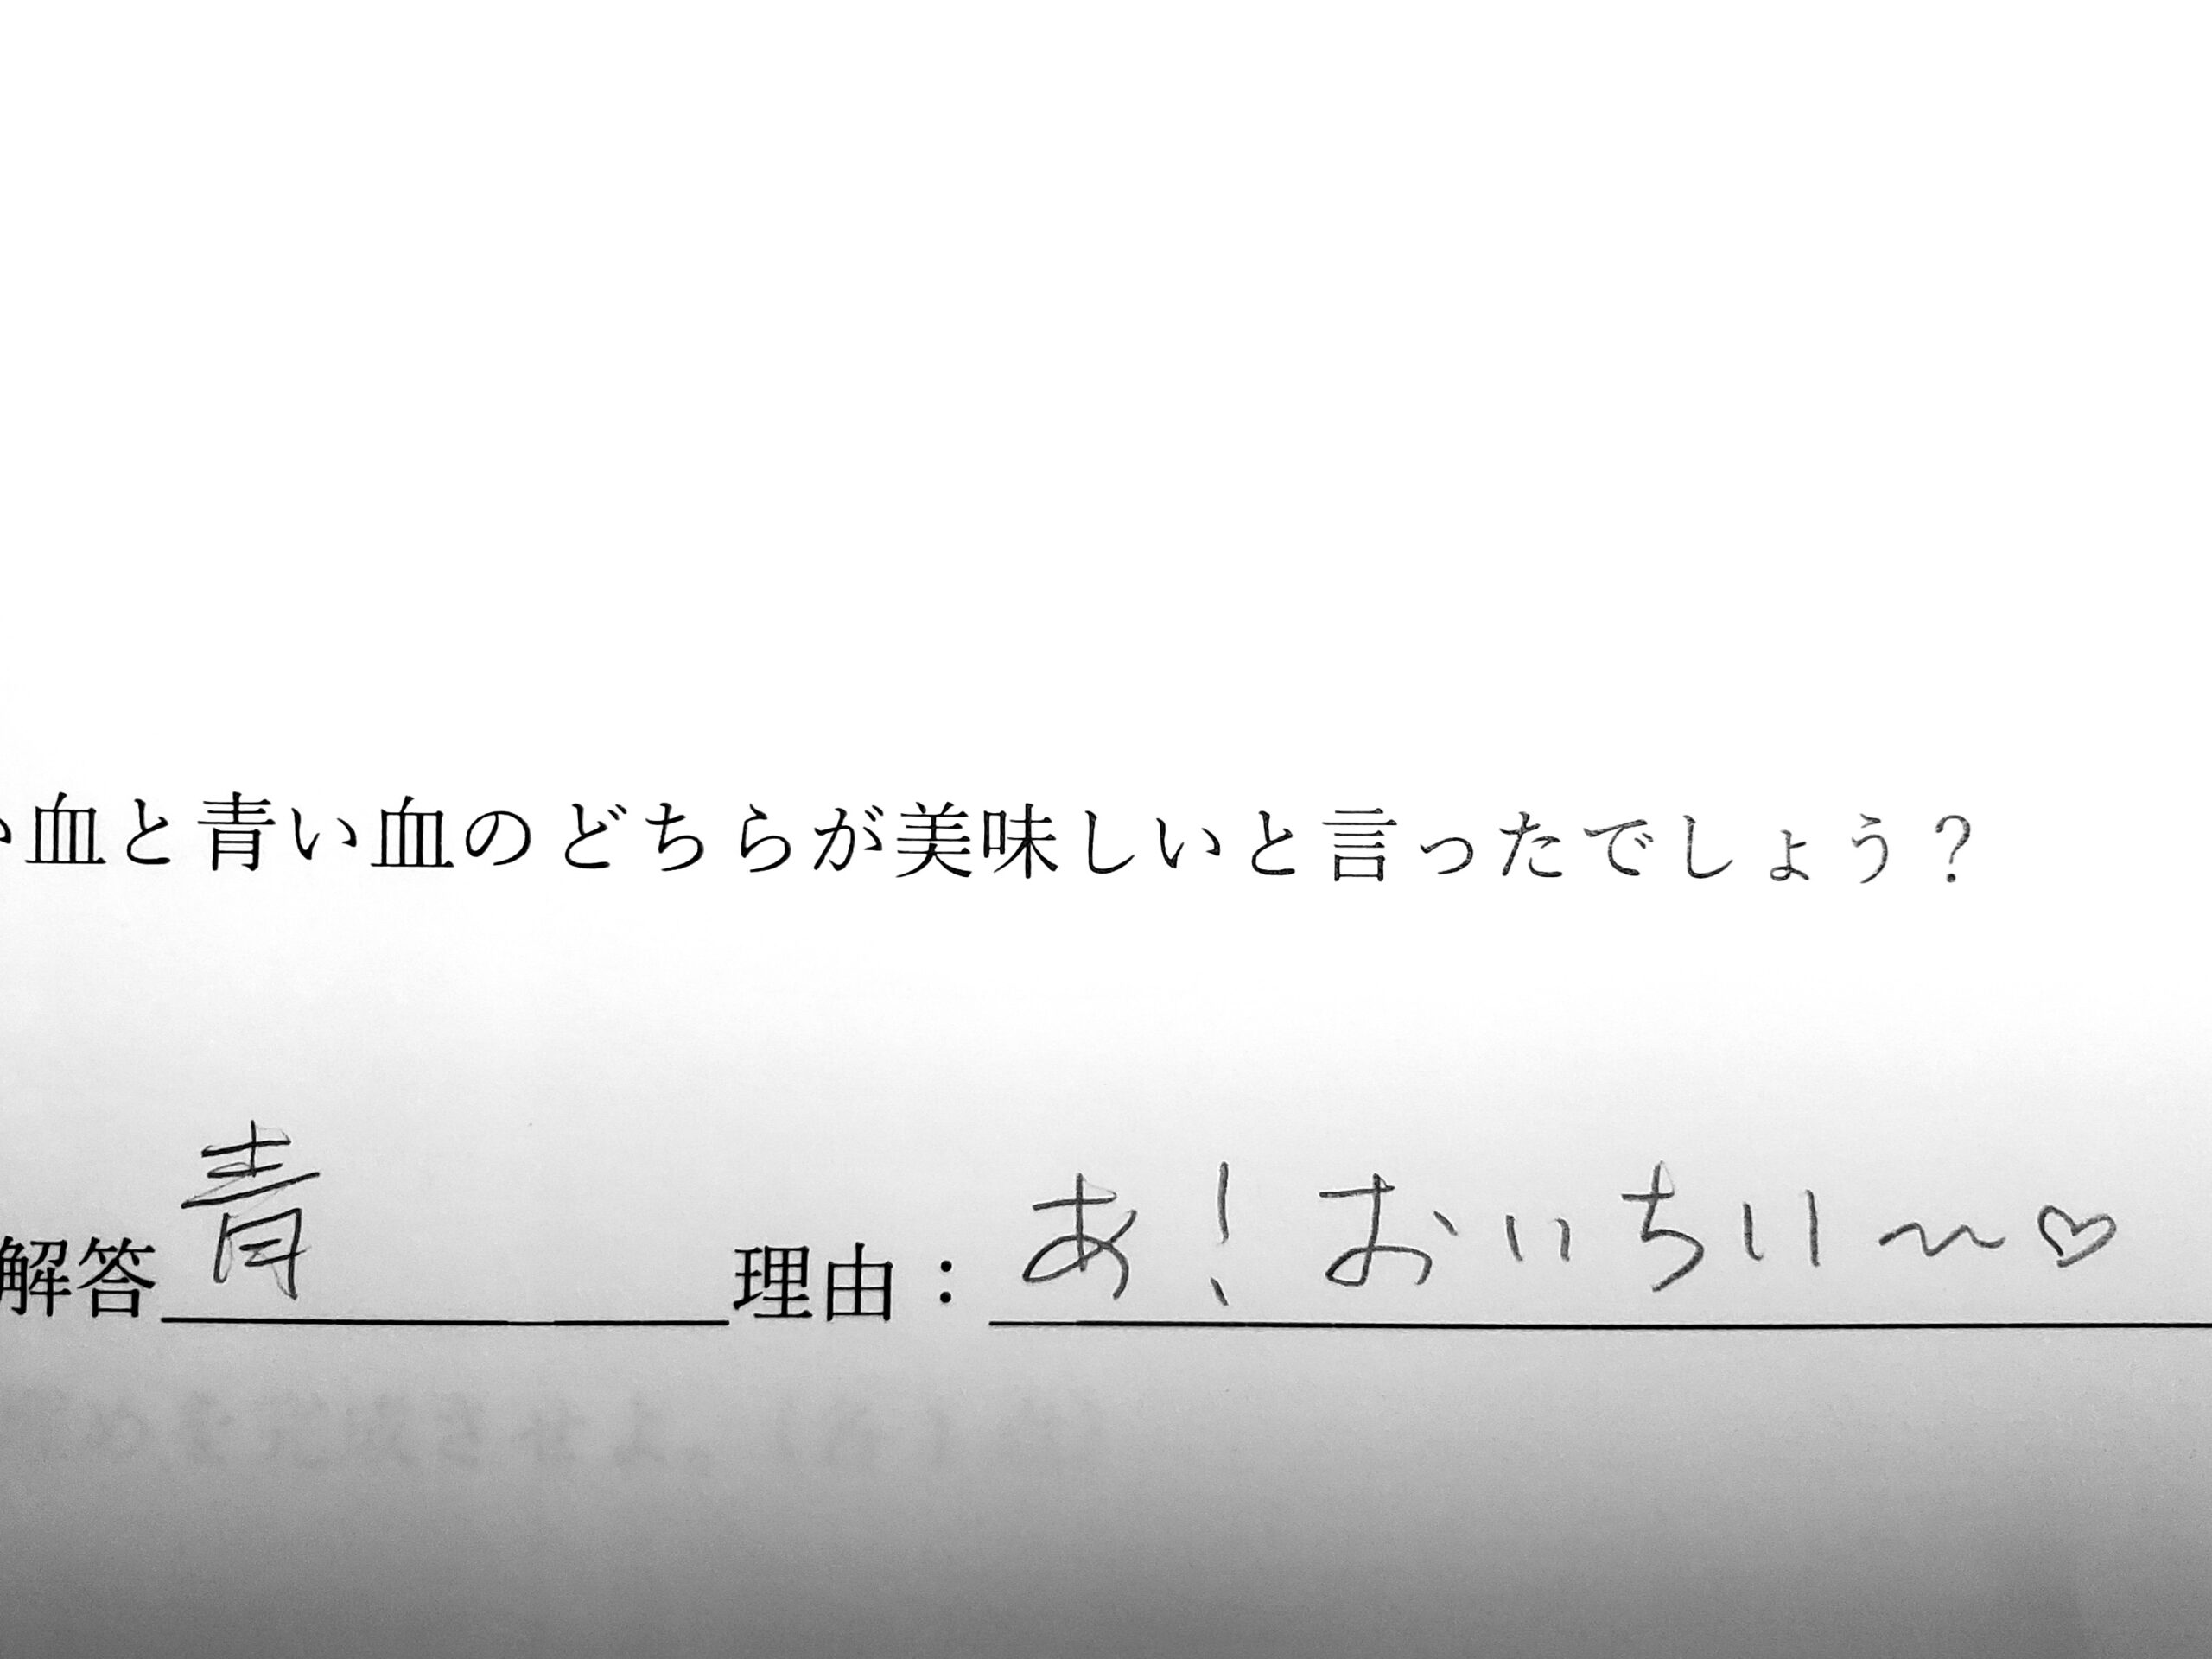 い血と青い血のどちらが美味しいと言ったでしょう？
解答 青 理由：あ！おいちい〜♡